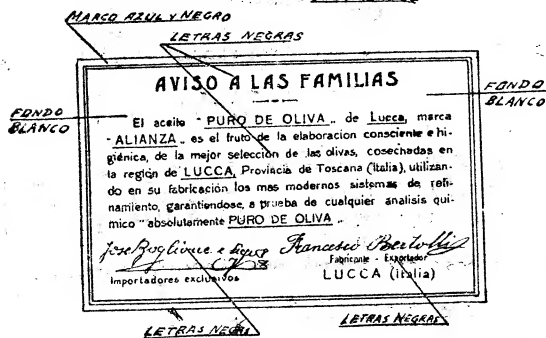 MARCO AZUL Y NEGRO
LETRAS NEGRAS
AVISO A LAS FAMILIAS
FONDO BLANCO
FONDO BLANCO
El aceite "PURO DE OLIVA" de Lucca, marca
"ALIANZA" es el fruto de la elaboracion consciente e hi-
giénica, de la mejor selección de las olivas, cosechadas en
la región de LUCCA, Provincia de Toscana (Italia), utilizan-
do en su fabricación los mas modernos sistemas de refi-
namiento, garantiendose, a prueba de cualquier analisis quí-
mico "absolutamente PURO DE OLIVA".
Jose Boglione e hijos Francesco Bertolli
Fabricante - Exportador
Importadores exclusivos LUCCA (italia)
LETRAS NEGRAS LETRAS NEGRAS